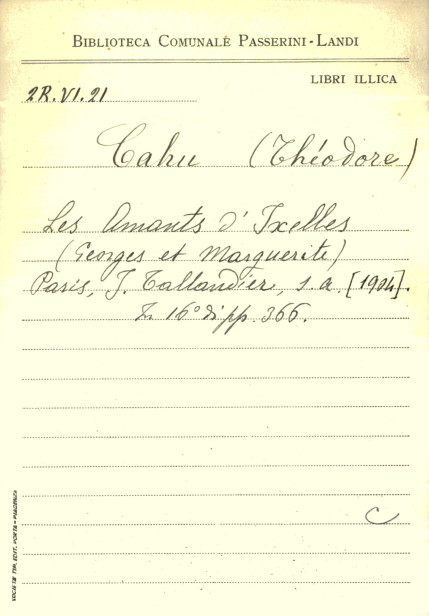 BIBLIOTECA COMUNALE PASSERINI-LANDI
LIBRI ILLICA
2R.VI.21
Cahu (Théodore)
Les Amants d'Ixelles
(Georges et Marguerite)
Paris, J. Tallandier, s.a. [1904].
16° di pp. 366.
C